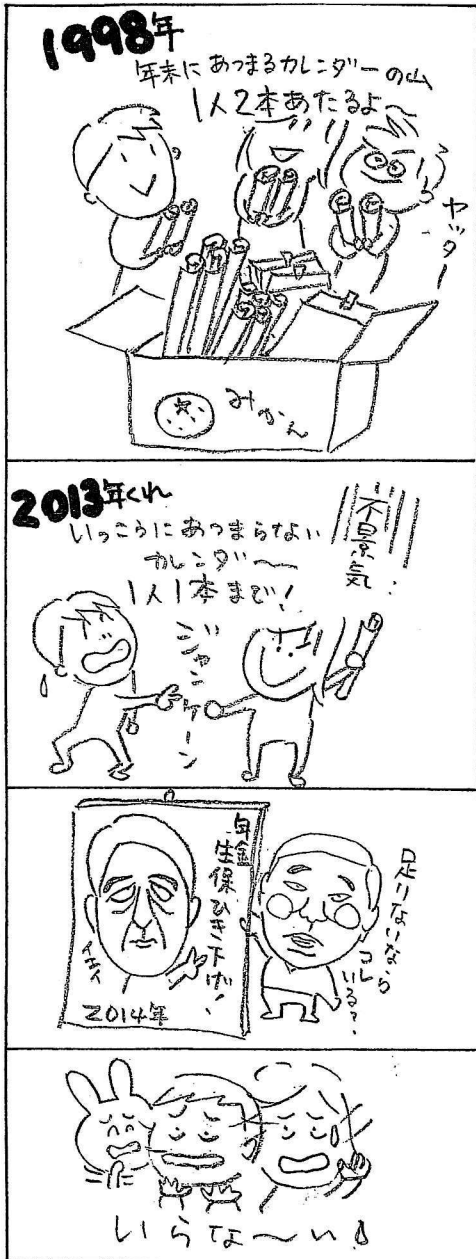 1998年
年末にあつまるカレンダーの山
1人2本あたるよ〜
ヤッター
みかん
2013年くれ
いっこうにあつまらない
カレンダ〜
1人1本まで!
不景気
ジャンケーン
年金
生保ひき下げ!
イエイ
2014年
足りないなら
コレ
いる?
いらな〜い